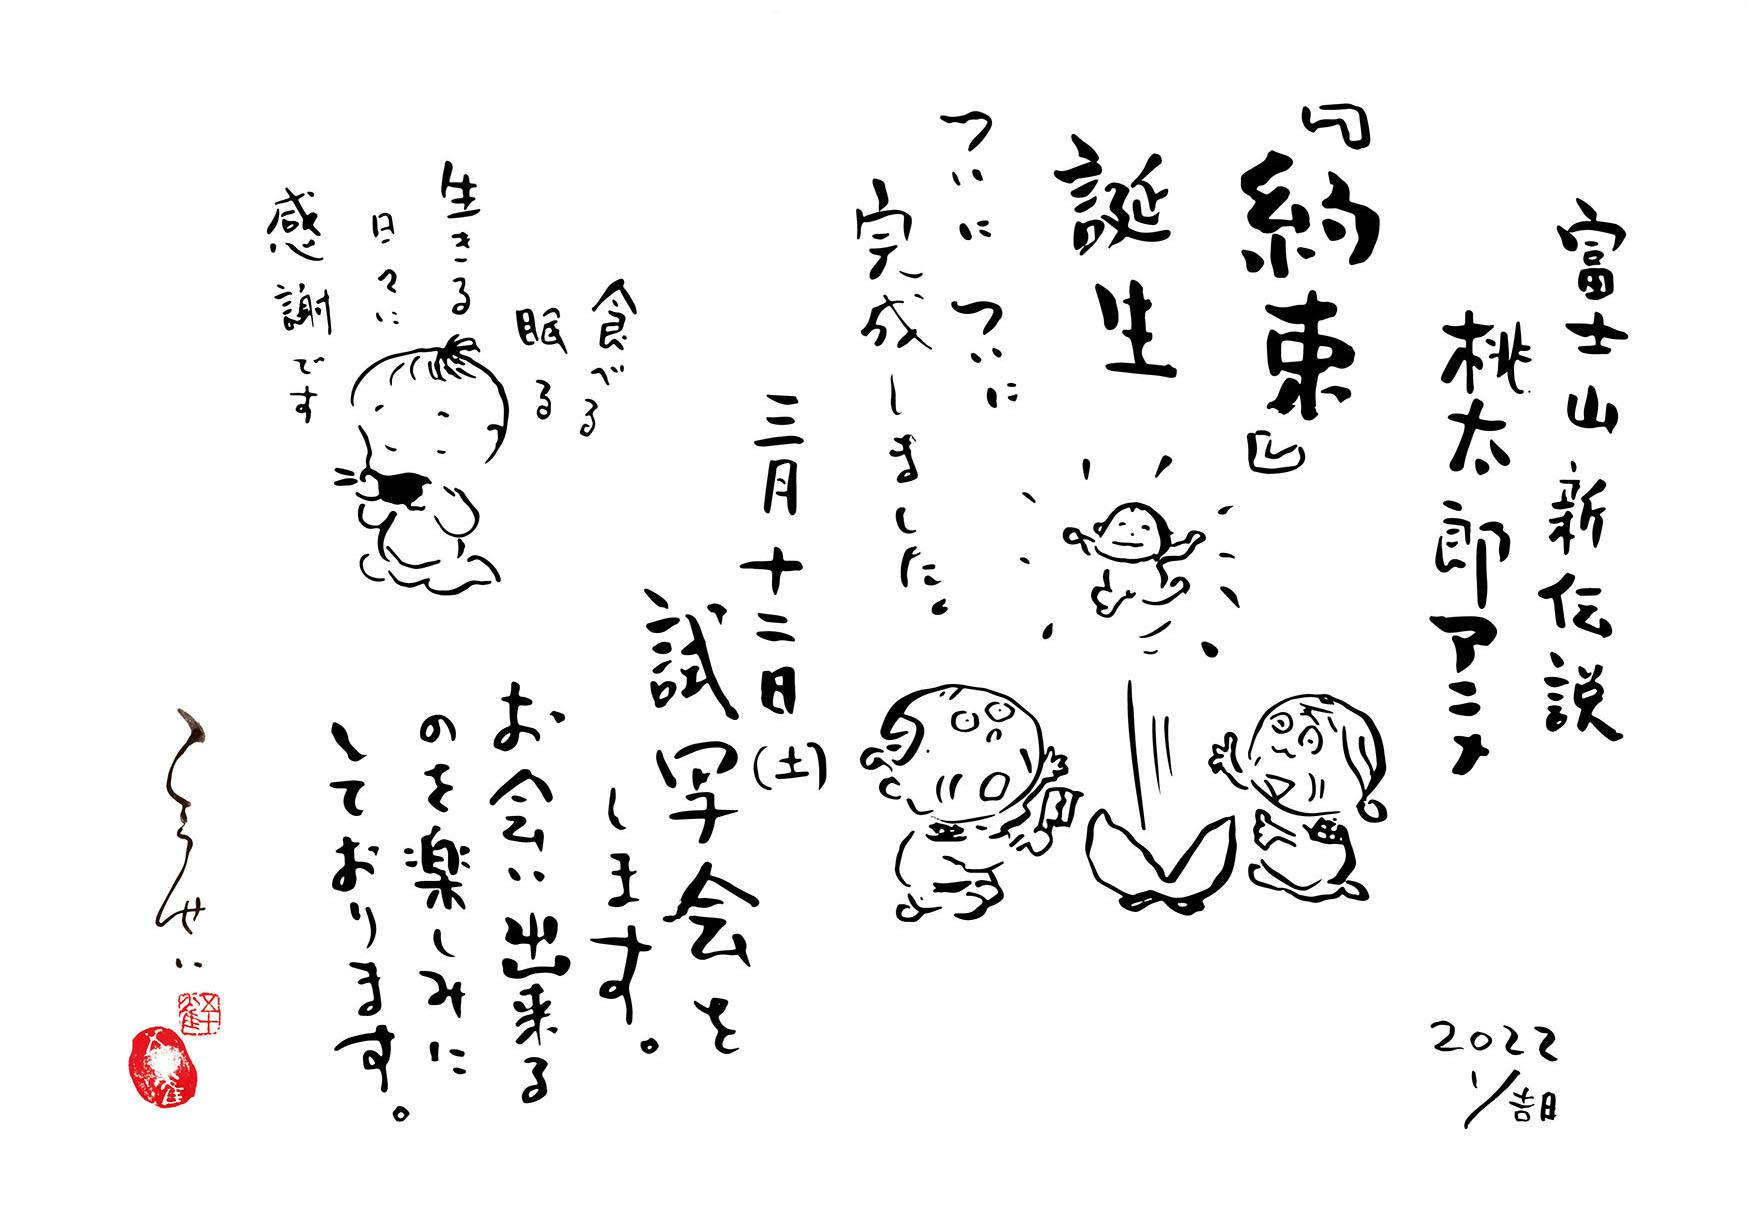 富士山新伝説
桃太郎アニメ
『約束』
誕生
ついについに
完成しました。
三月十二日(土)
試写会を
します。
お会い出来る
のを楽しみに
しております。
食べる
眠る
生きる
日々に
感謝です
2022
1/吉日